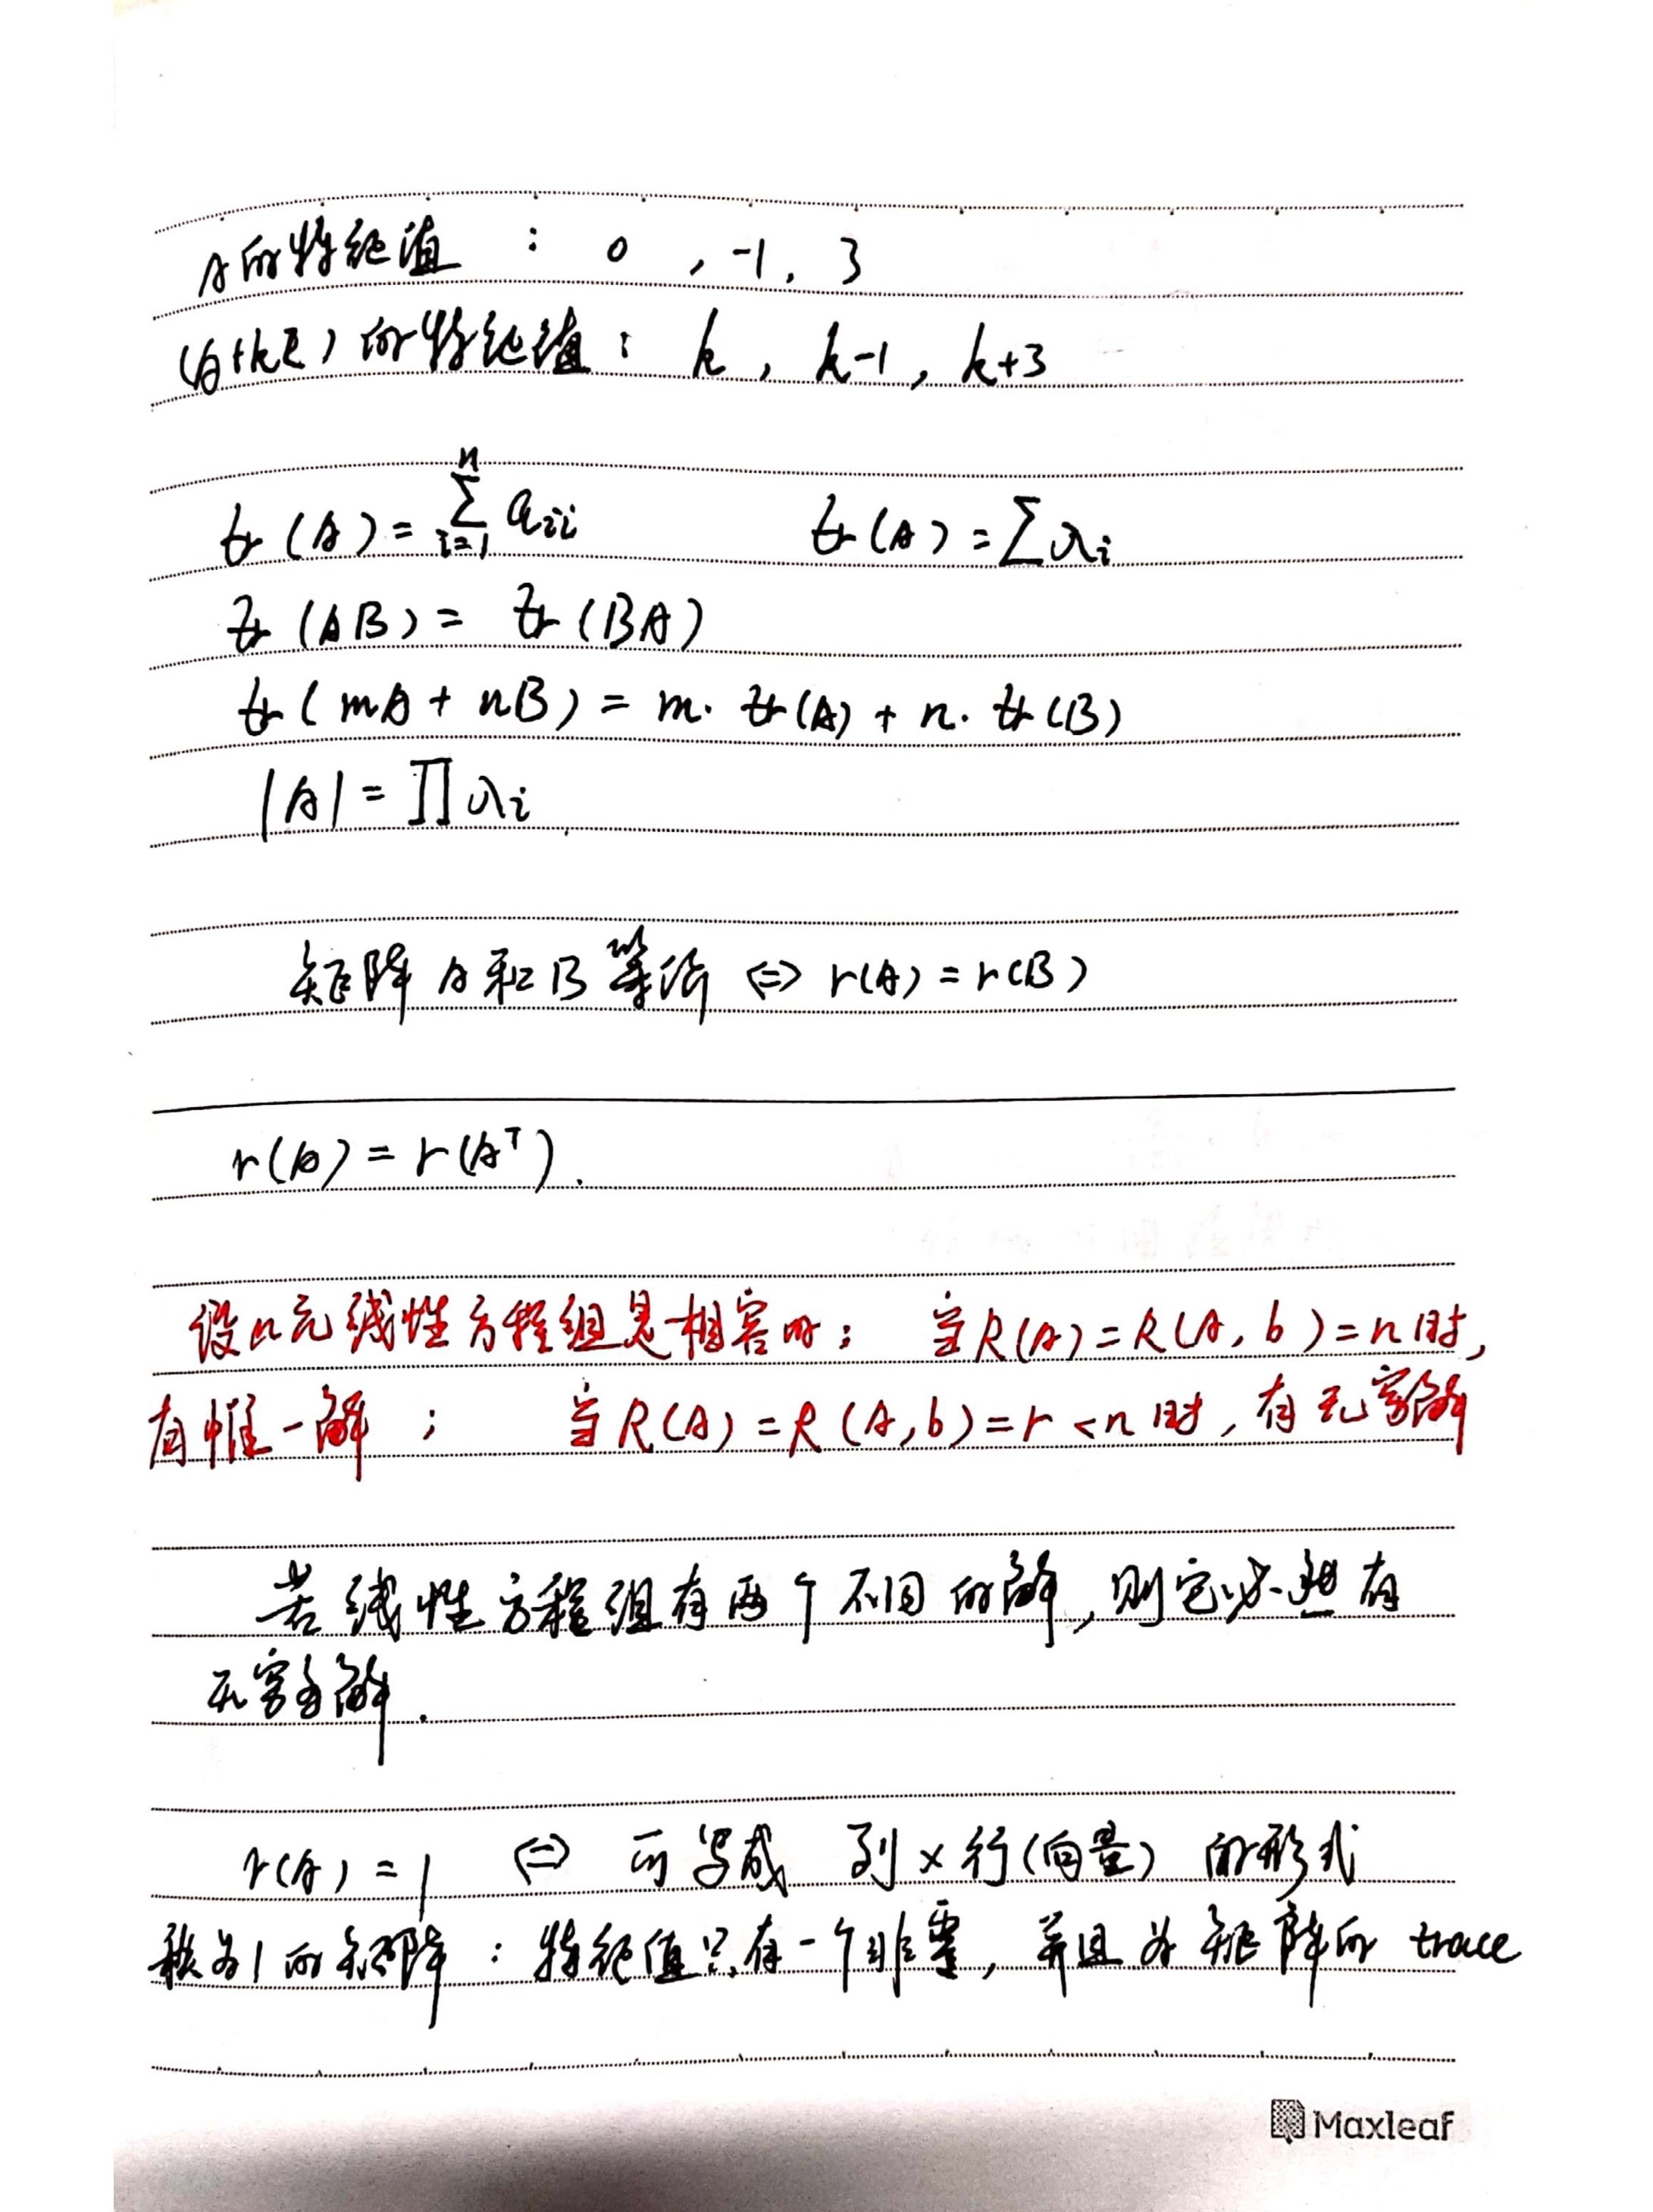 A的特征值 : 0 , -1, 3
(A+kE) 的特征值: k, k-1, k+3
tr(A) = ∑_{i=1}^{n} a_{ii} tr(A) = ∑λ_i
tr(AB) = tr(BA)
tr(mA + nB) = m· tr(A) + n· tr(B)
|A| = ∏ λ_i
矩阵 A 和 B 等价 ⇔ r(A) = r(B)
r(A) = r(A^T).
设n元线性方程组是相容的; 当R(A)=R(A,b)=n时,
有惟一解; 当R(A)=R(A,b)=r<n时,有无穷解
若线性方程组有两个不同的解,则它必然有
无穷多解.
r(A) = 1 ⇔ 可写成 列×行(向量) 的形式
秩为1的矩阵: 特征值只有一个非零, 并且为矩阵的 trace
Maxleaf